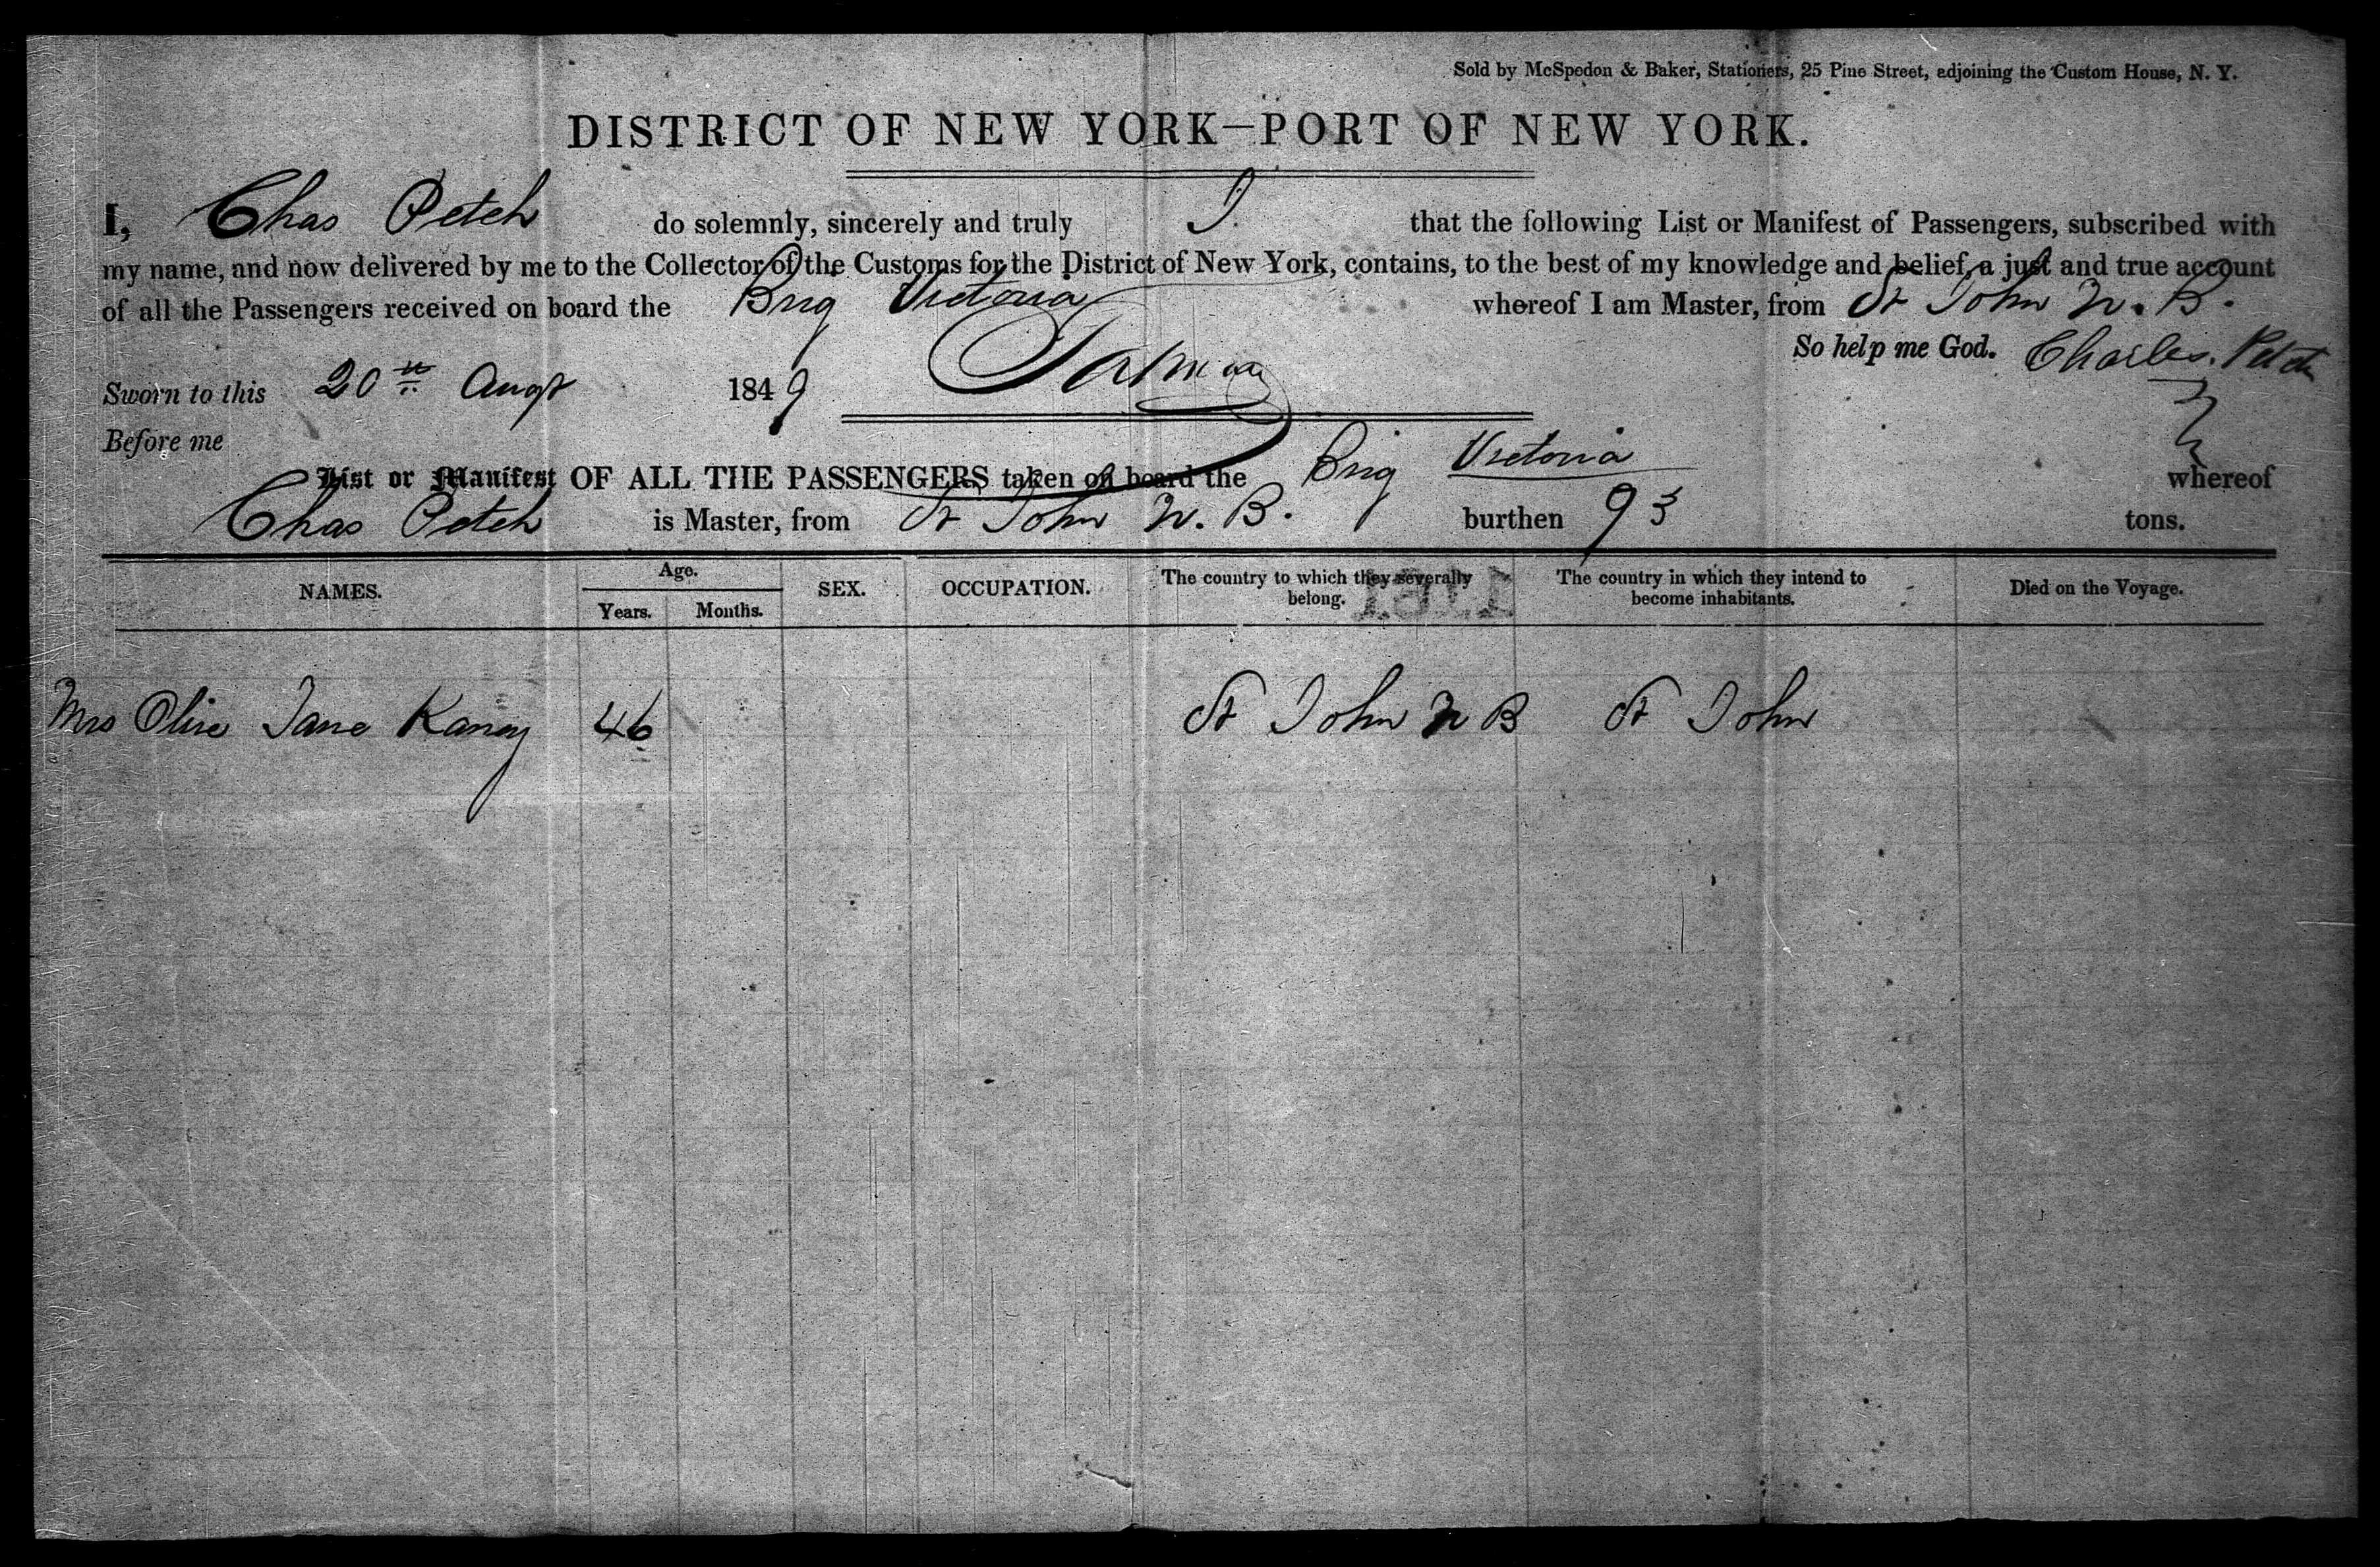 Sold by McSpedon & Baker, Stationers, 25 Pine Street, adjoining the Custom House, N. Y.
DISTRICT OF NEW YORK—PORT OF NEW YORK.
I, Chas Petch do solemnly, sincerely and truly that the following List or Manifest of Passengers, subscribed with
my name, and now delivered by me to the Collector of the Customs for the District of New York, contains, to the best of my knowledge and belief, a just and true account
of all the Passengers received on board the Brig Victoria whereof I am Master, from St John N. B.
So help me God. Charles Petch
Sworn to this 20th Augt 1849
Before me
List or Manifest OF ALL THE PASSENGERS taken on board the Brig Victoria whereof
Chas Petch is Master, from St John N. B. burthen 93 tons.
NAMES. Age. Years. Months. SEX. OCCUPATION. The country to which they severally belong. The country in which they intend to become inhabitants. Died on the Voyage.
Mrs Olive Jane Kaney 46 St John N B St John